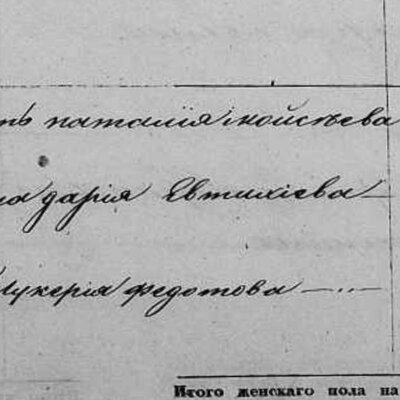 ть наталія мойсѣева
на дарія Евтихіева
лукерія федотова
Итого женскаго пола на